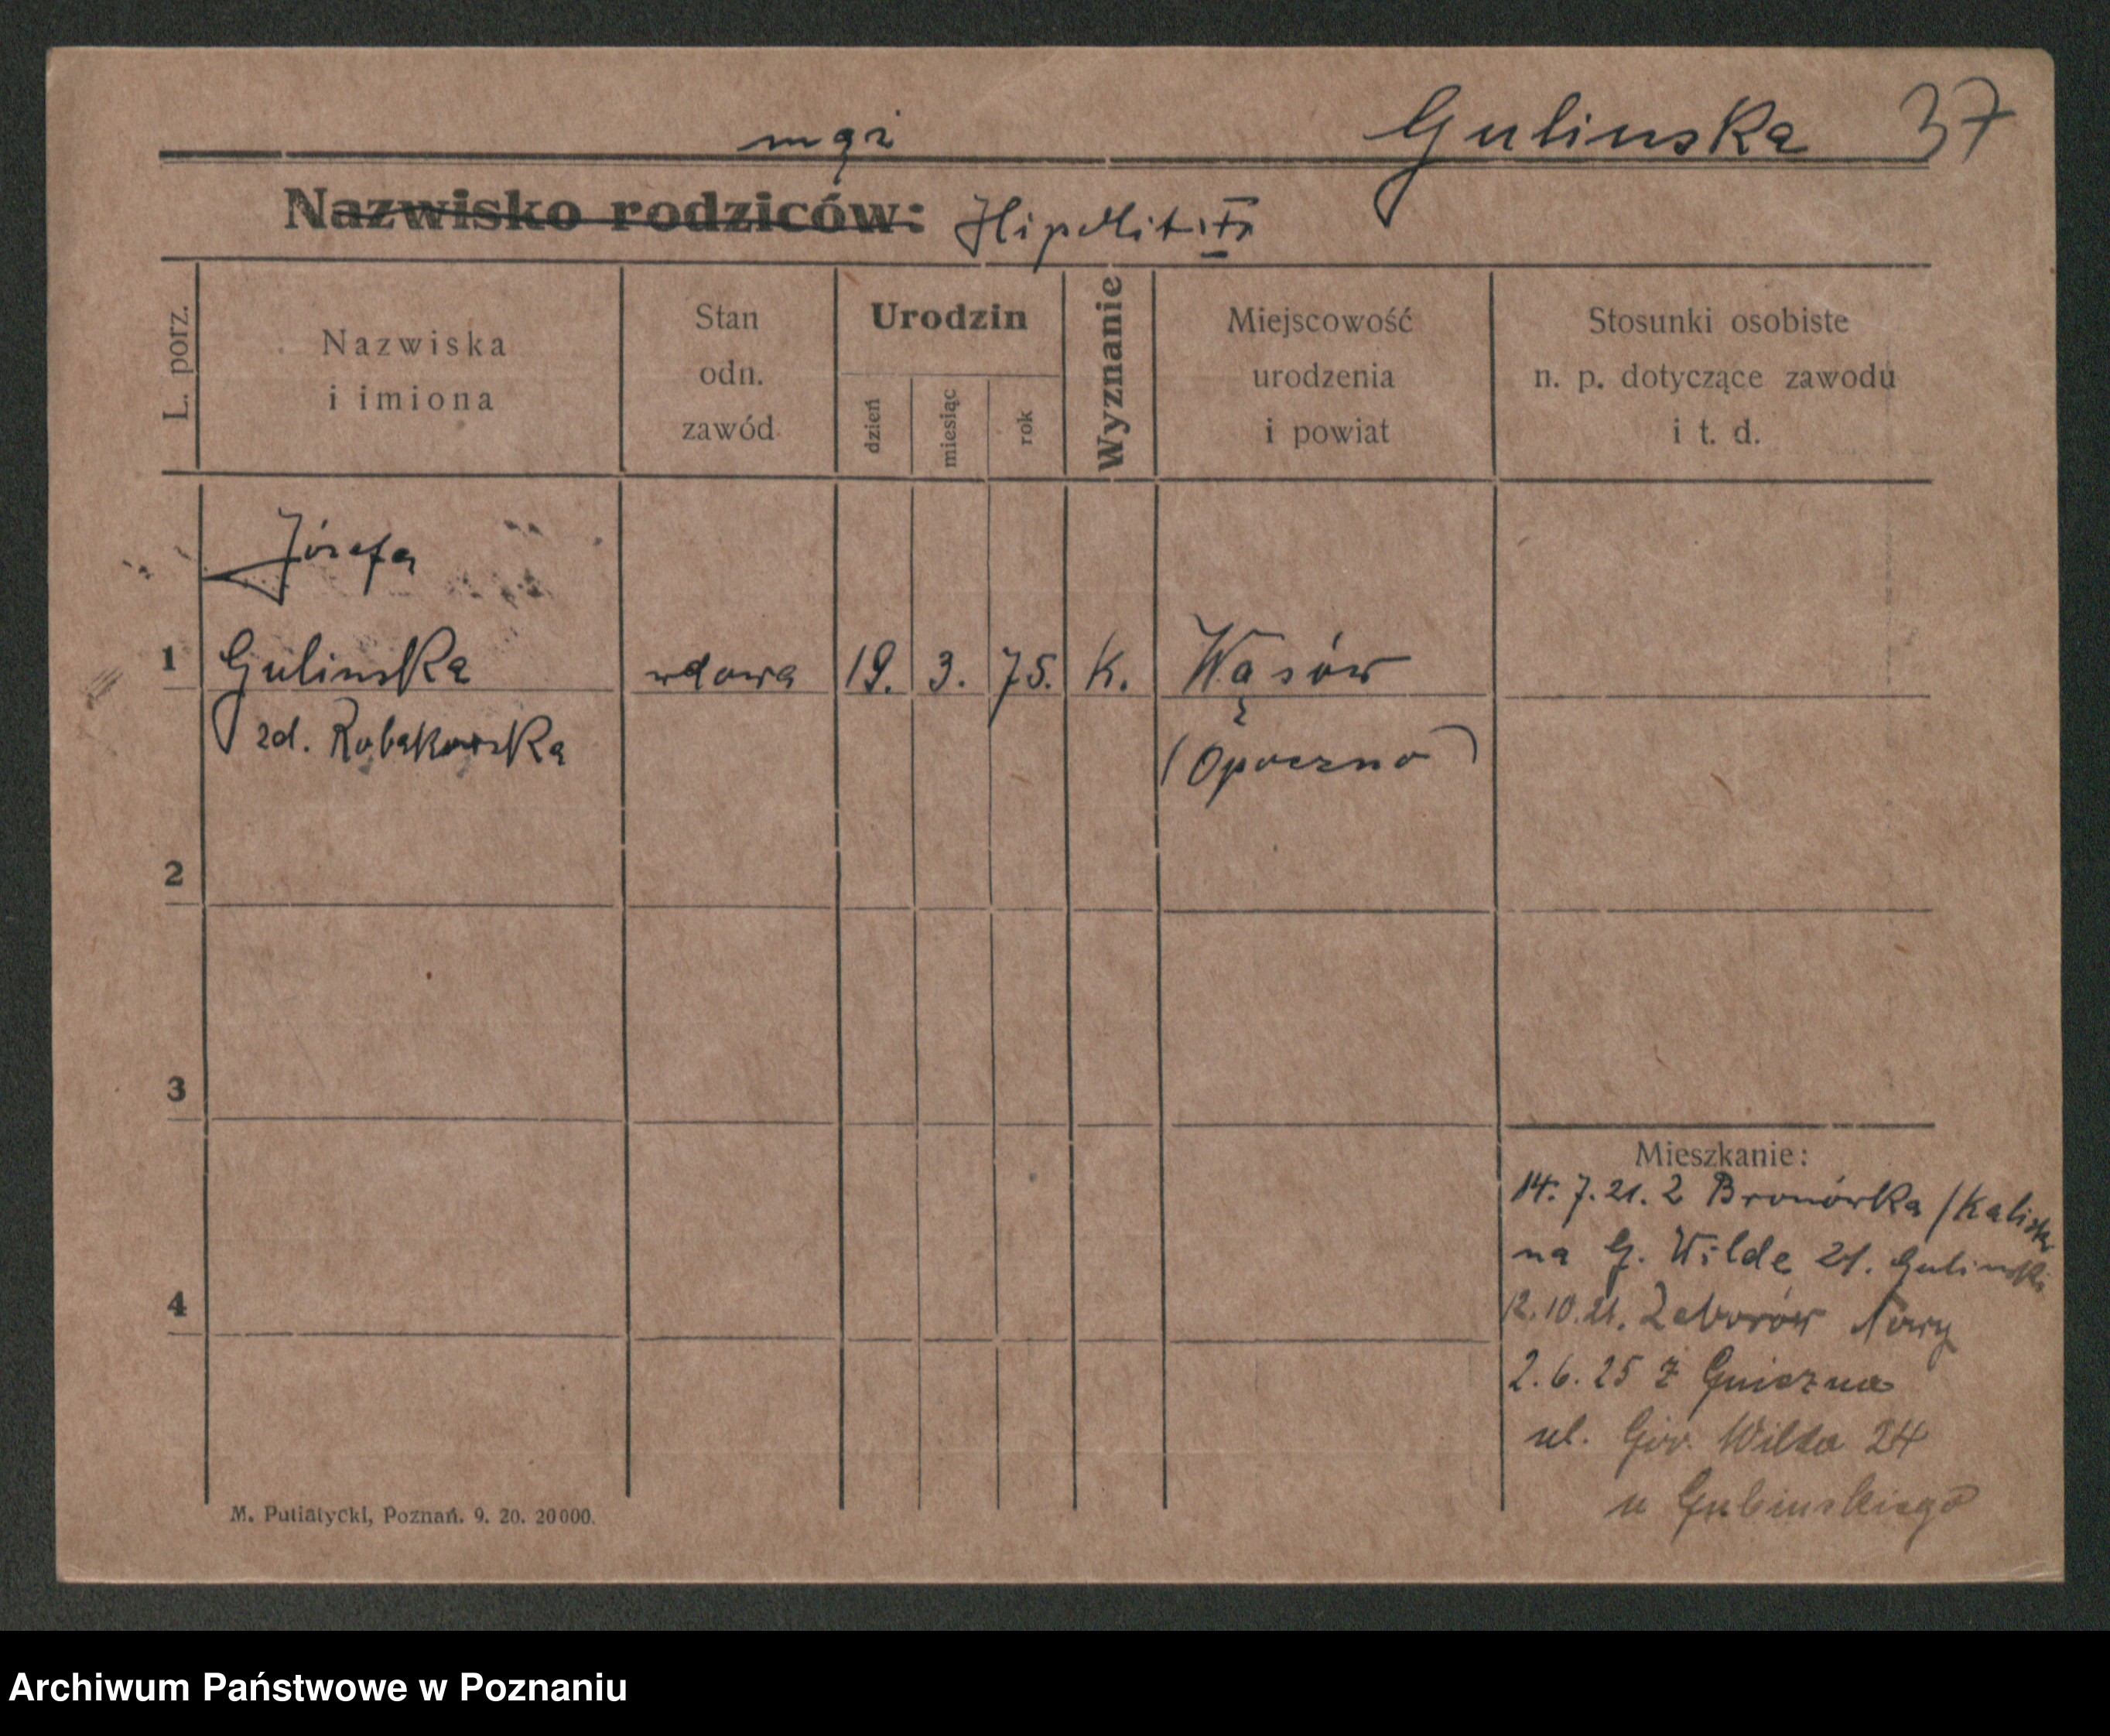 mąż Gulinska 37
Nazwisko rodziców: Hipolit
L. porz.
Nazwiska
i imiona
Stan
odn.
zawód
Urodzin
dzień
miesiąc
rok
Wyznanie
Miejscowość
urodzenia
i powiat
Stosunki osobiste
n. p. dotyczące zawodu
i t. d.
Józefa
1 Gulinska wdowa 19. 3. 75. K. Wąsów
zd. Robakowska (Opoczno)
2
3
4
Mieszkanie:
14. 7. 21. z Bronówka /Kalisk
na G. Wilde 21. Gulinski
12. 10. 21. Zaborów Nowy
2. 6. 25 z Gniezna
ul. Gór. Wilda 24
u Gulinskiego
M. Putiatycki, Poznań. 9. 20. 20000.
Archiwum Państwowe w Poznaniu